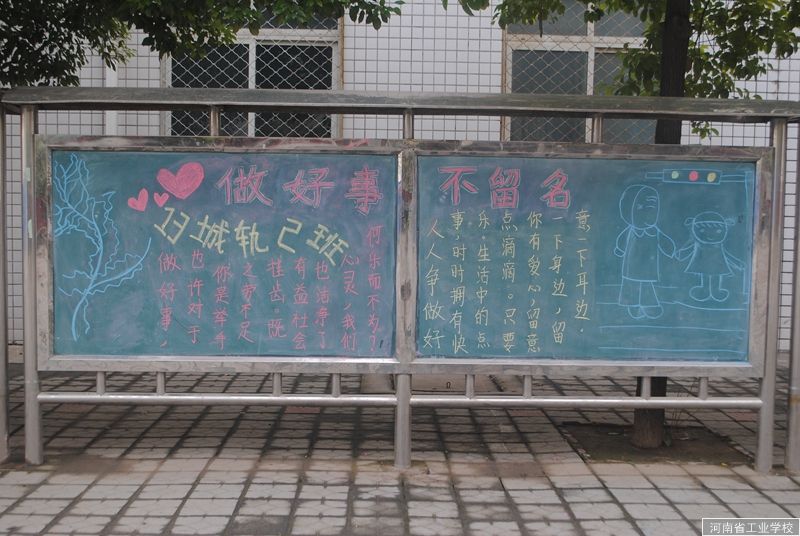 做好事
不留名
13城轨2班
做好事，
也许对于
你是举手
之劳不足
挂齿。既
有益社会
也洁净了
心灵，我们
何乐而不为？
人人争做好
事，时时拥有快
乐，生活中的点
点滴滴。只要
你有爱心，留意
一下身边，留
意一下耳边．
河南省工业学校